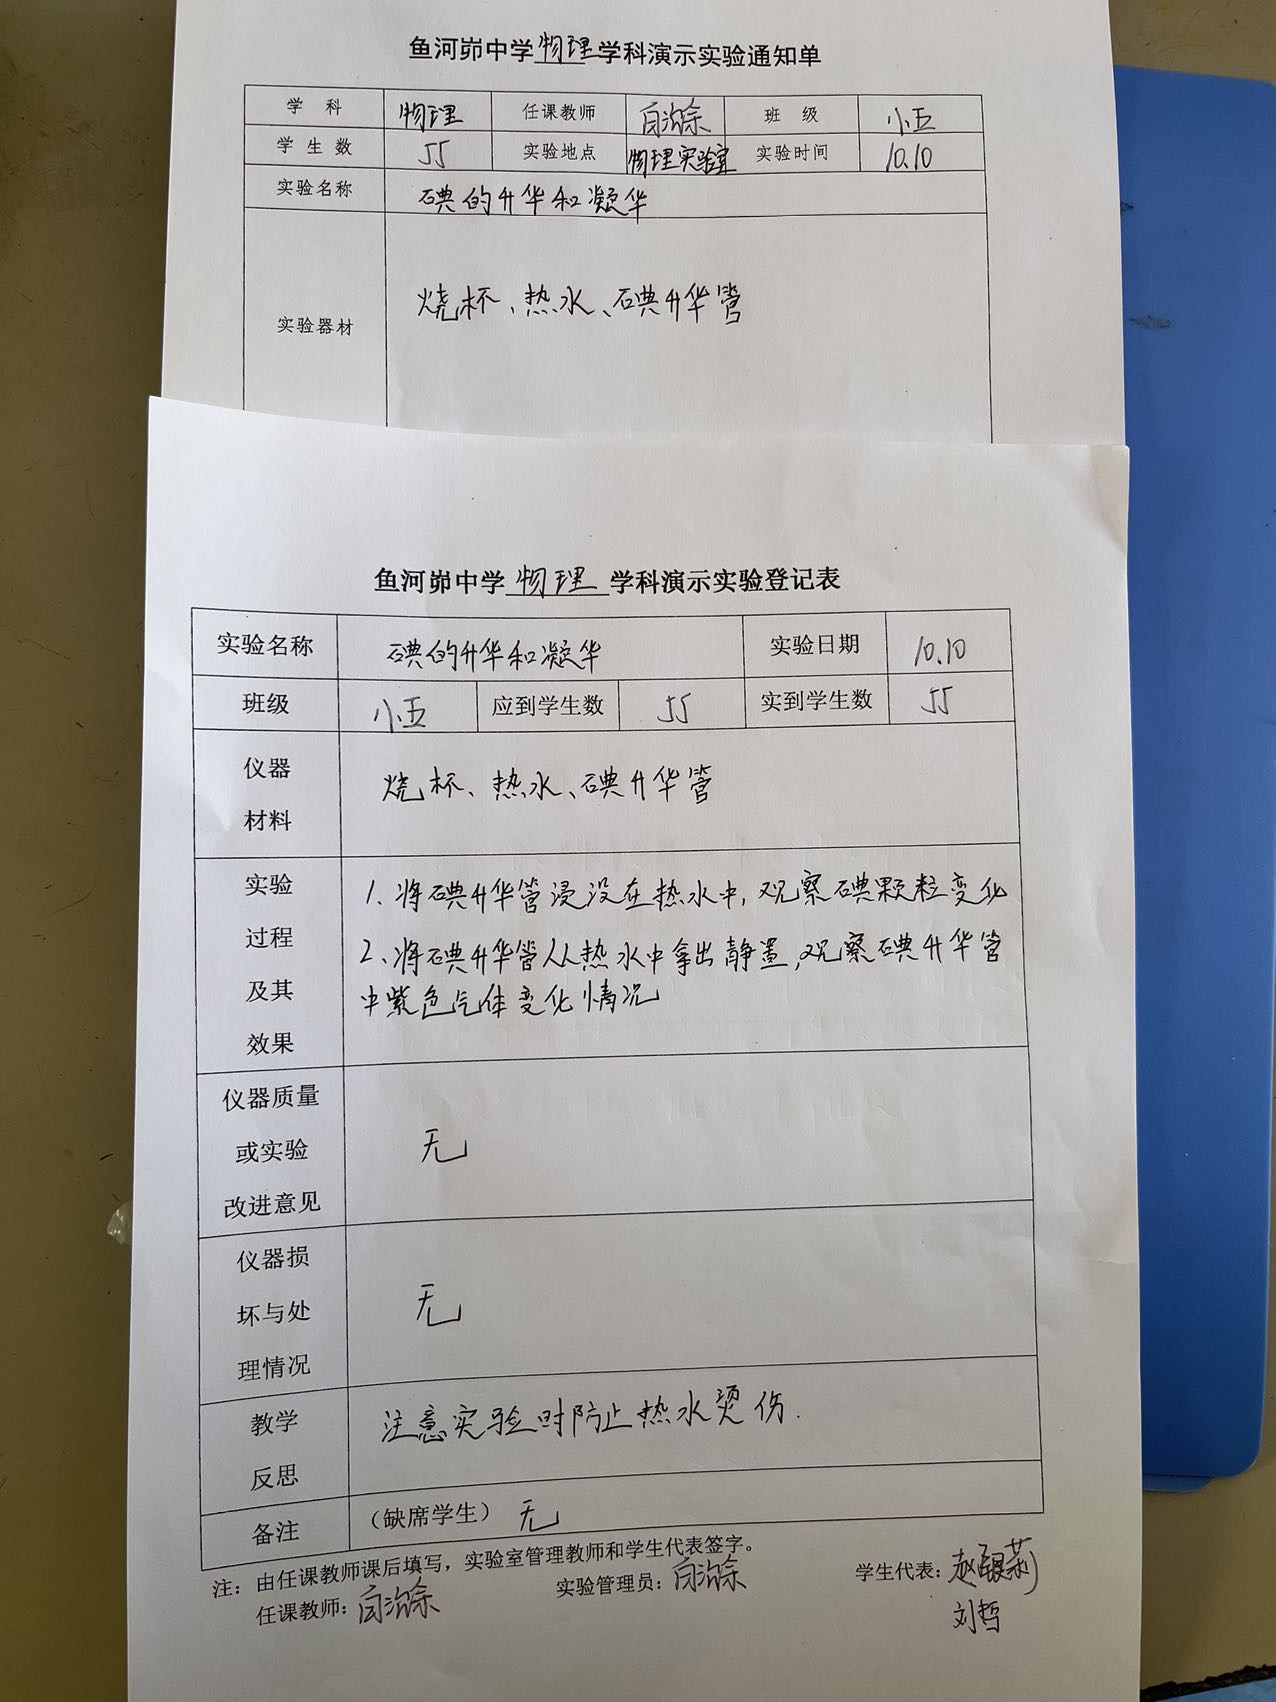 鱼河峁中学物理学科演示实验通知单
学 科 物理 任课教师 班 级 小五
学 生 数 55 实验地点 物理实验室 实验时间 10.10
实验名称 碘的升华和凝华
实验器材 烧杯、热水、碘升华管
鱼河峁中学 物理 学科演示实验登记表
实验名称 碘的升华和凝华 实验日期 10.10
班级 小五 应到学生数 55 实到学生数 55
仪器
材料
烧杯、热水、碘升华管
实验
过程
及其
效果
1、将碘升华管浸没在热水中,观察碘颗粒变化
2、将碘升华管从热水中拿出静置,观察碘升华管
中紫色气体变化情况
仪器质量
或实验
改进意见
无
仪器损
坏与处
理情况
无
教学
反思
注意实验时防止热水烫伤.
备注 (缺席学生) 无
注：由任课教师课后填写，实验室管理教师和学生代表签字。
任课教师: 实验管理员: 学生代表:
刘哲